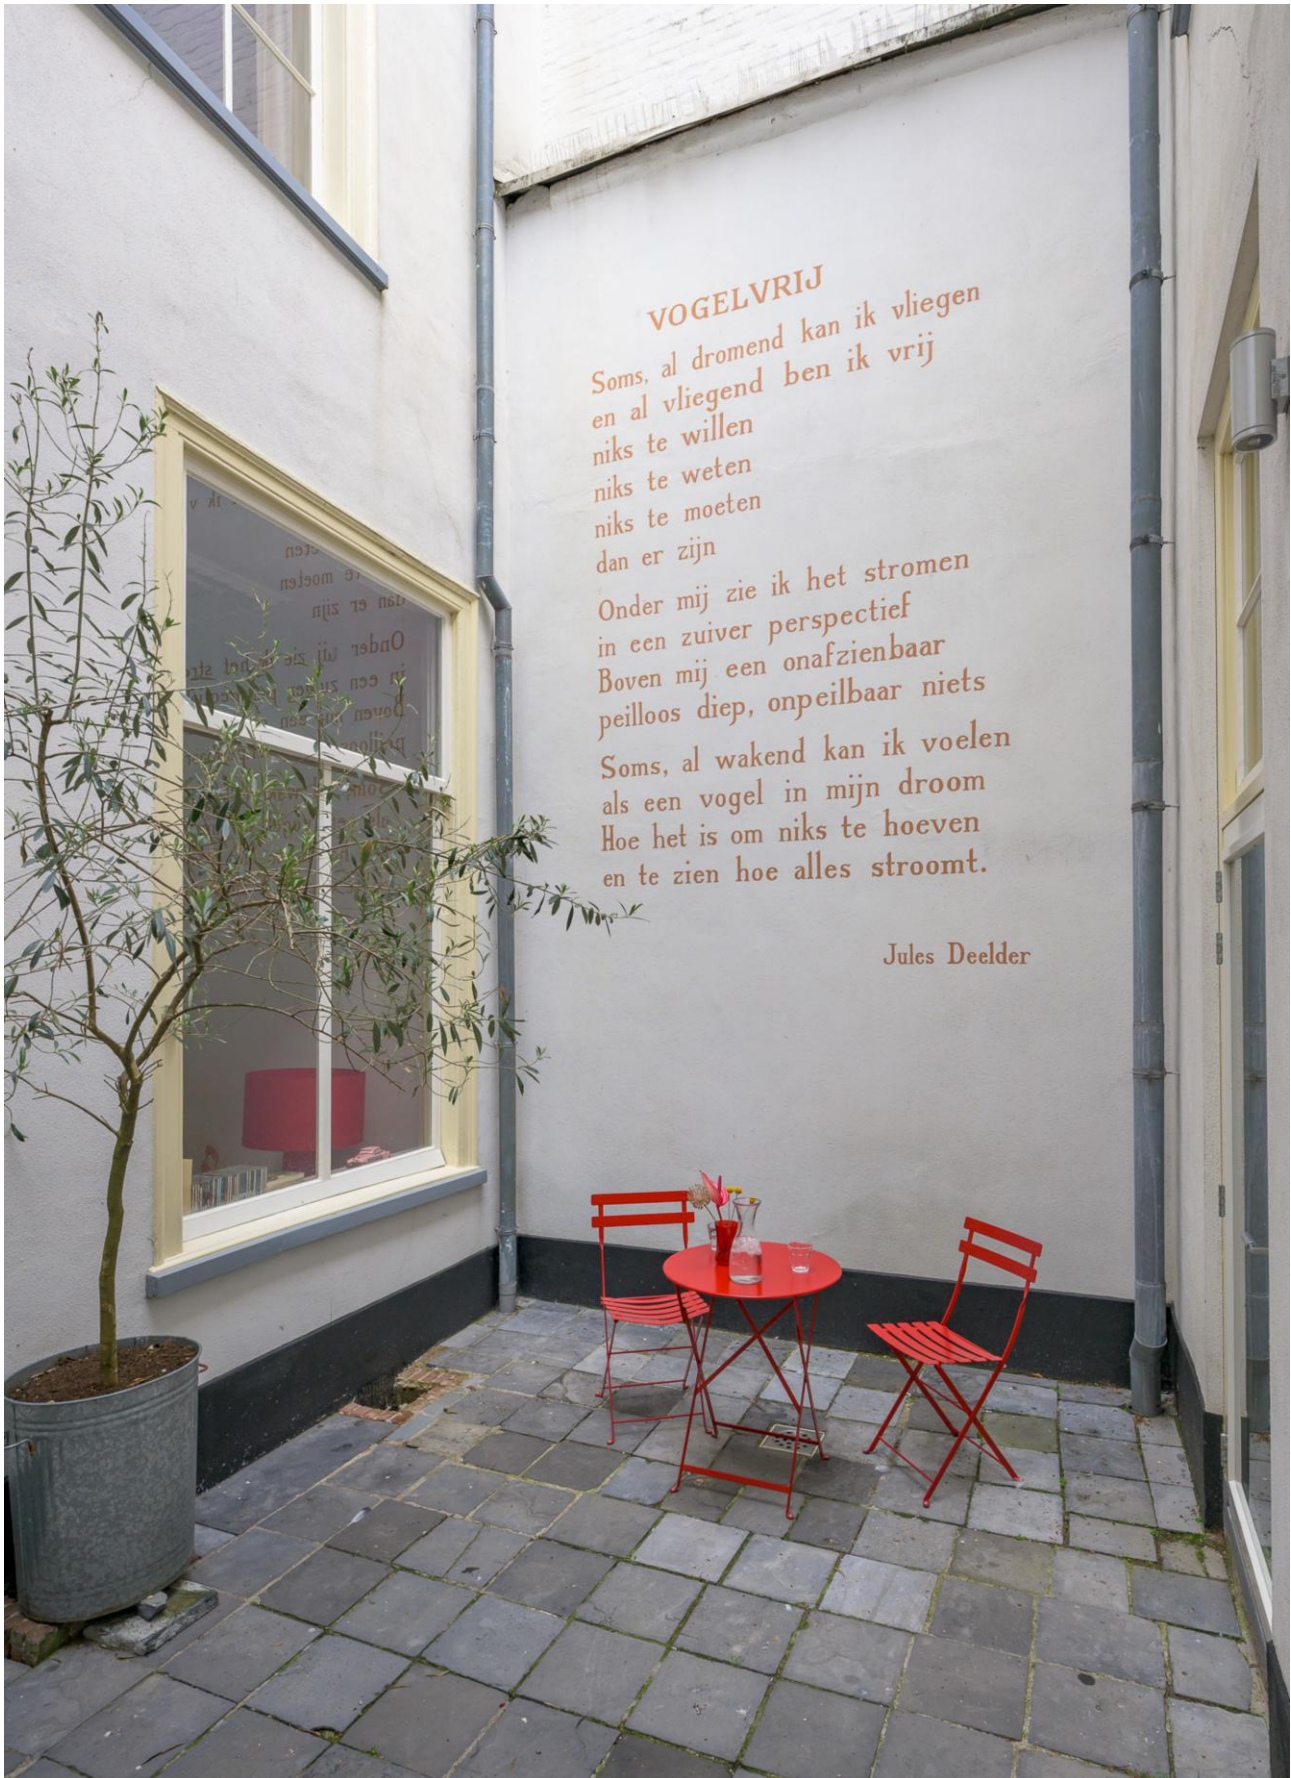 VOGELVRIJ
Soms, al dromend kan ik vliegen
en al vliegend ben ik vrij
niks te willen
niks te weten
niks te moeten
dan er zijn
Onder mij zie ik het stromen
in een zuiver perspectief
Boven mij een onafzienbaar
peilloos diep, onpeilbaar niets
Soms, al wakend kan ik voelen
als een vogel in mijn droom
Hoe het is om niks te hoeven
en te zien hoe alles stroomt.
Jules Deelder